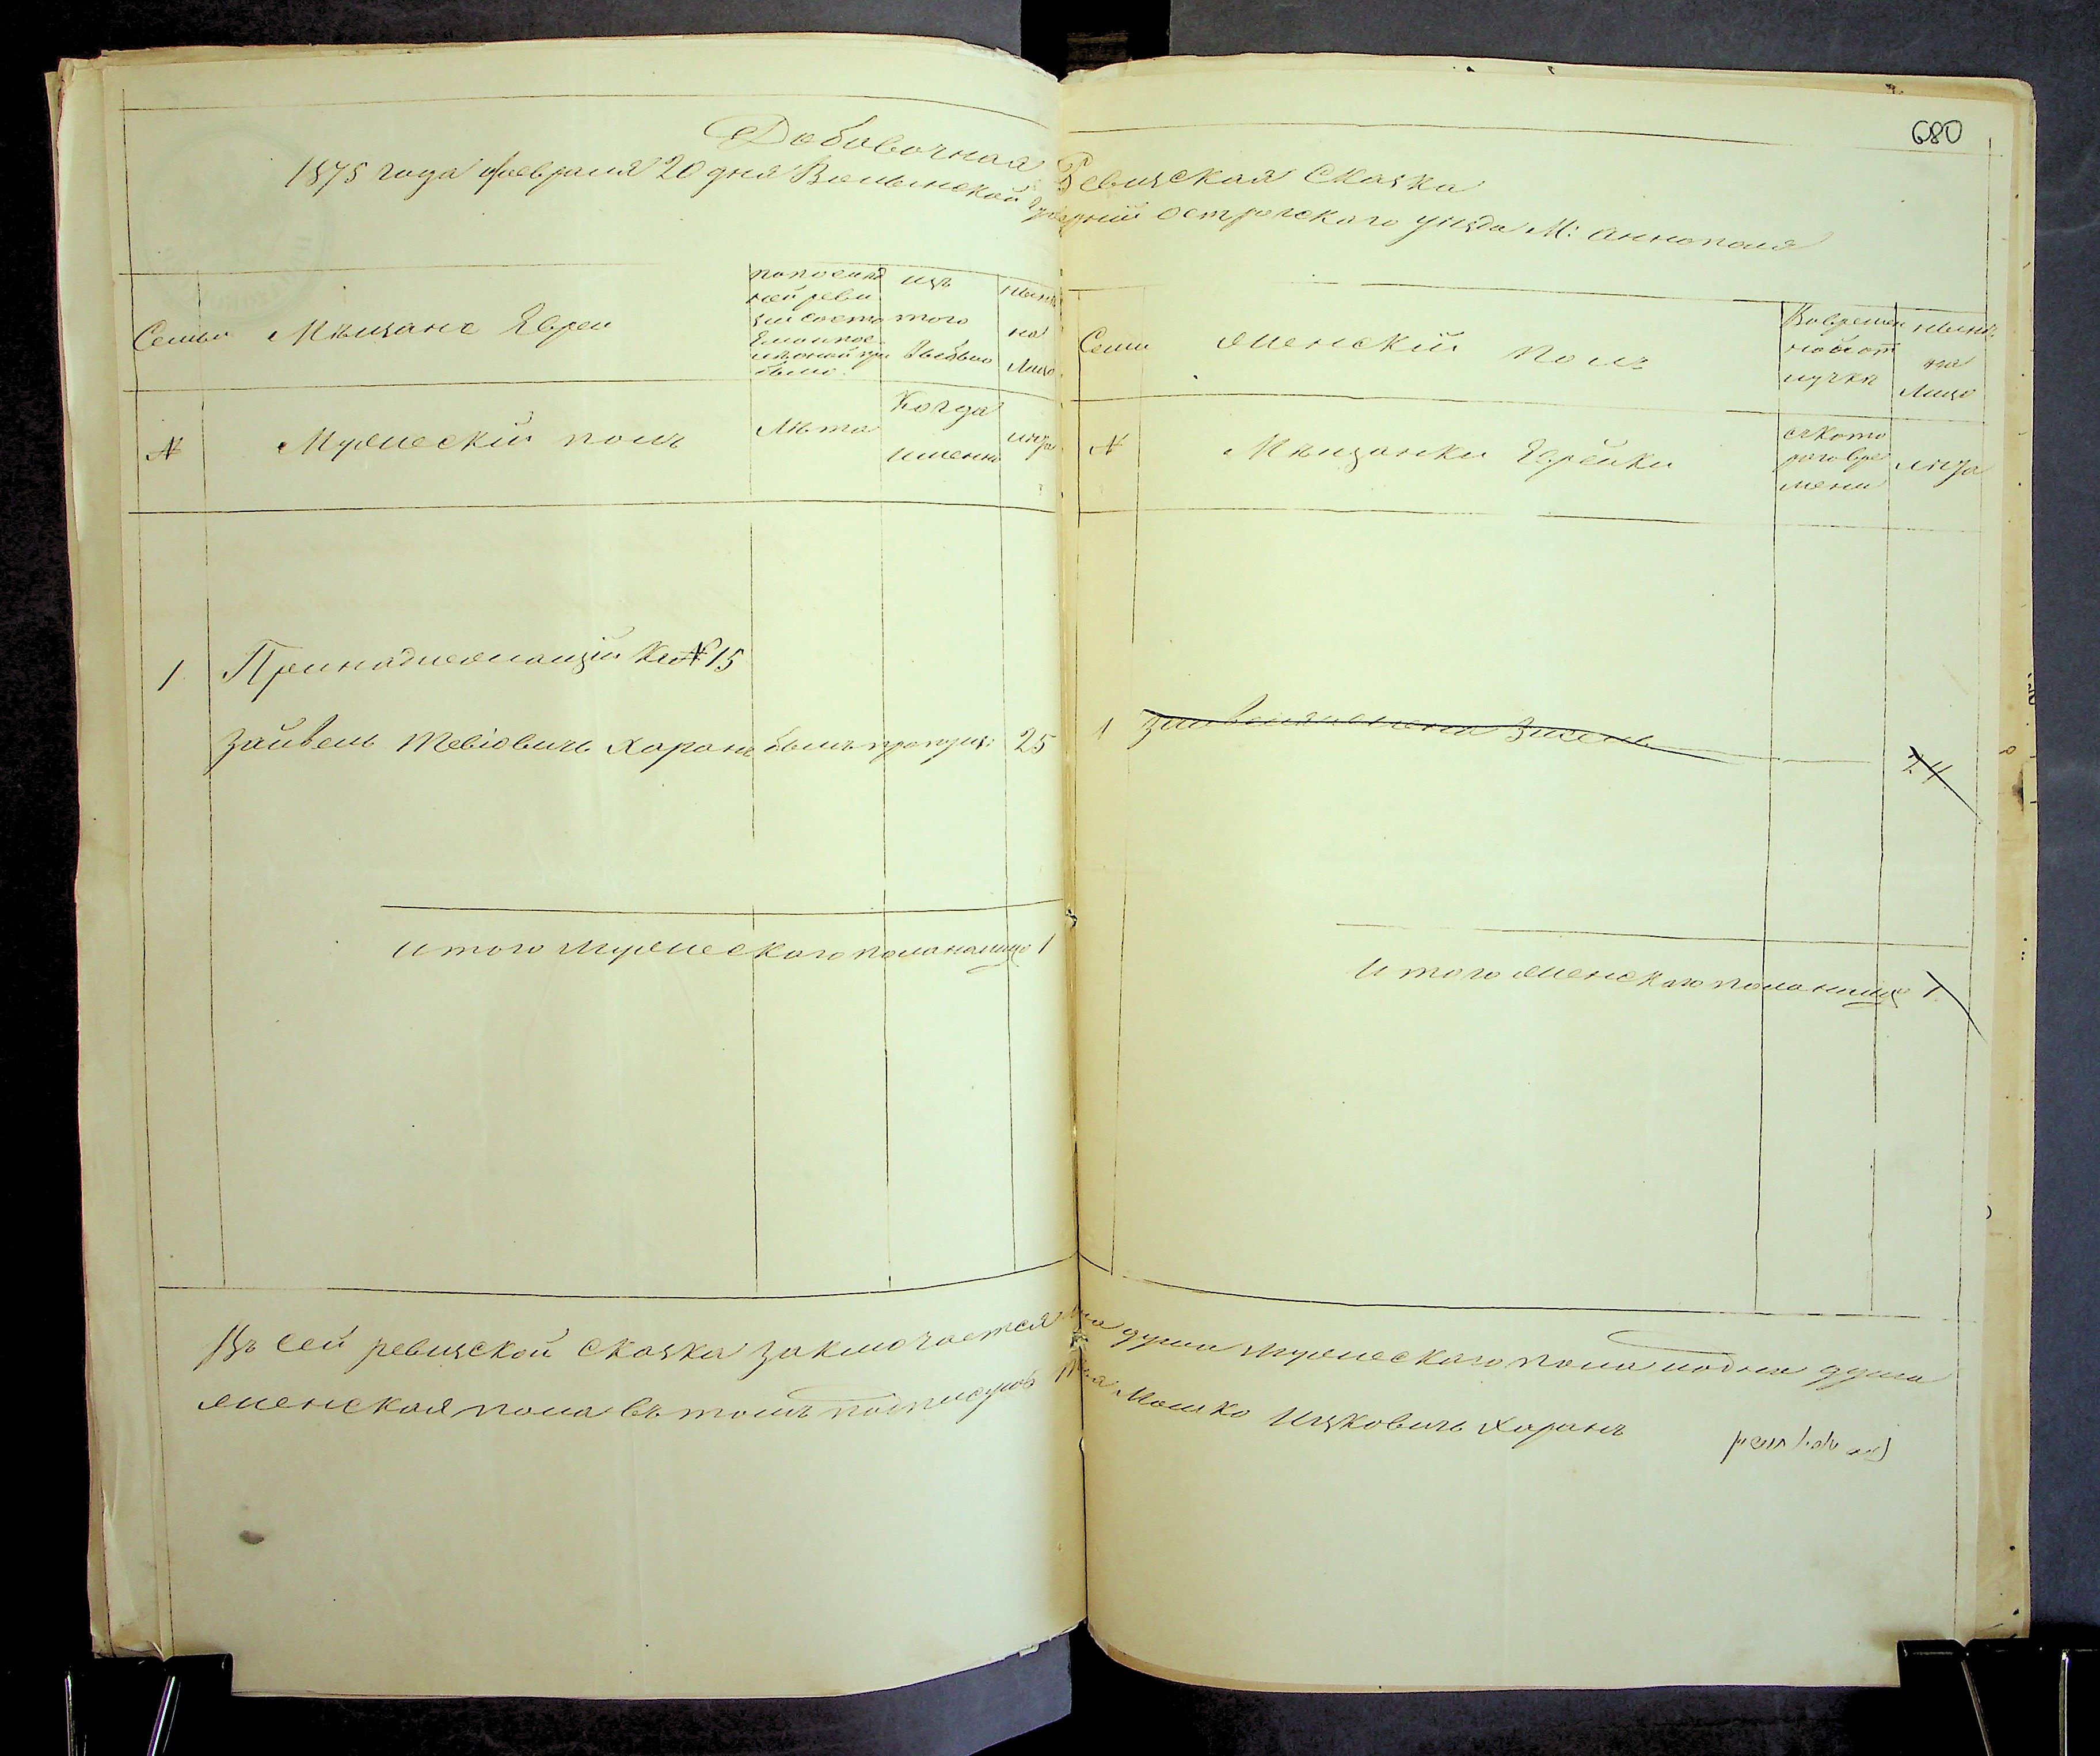 680
Добавочная Ревизская Сказка
1875 года февраля 20 дня Волынской губерніи Острогского уезда М: Аннополя
Семьи
Мѣщане Евреи
по послѣд
ней реви
зіи состо
было
изъ
того
выбыло
нынѣ
на
лицо
№
Мужескій полъ
Лѣта
Когда
именно
лѣта
1
Принадлежащій къ № 15
Зайвель Тевіовичъ Харан былъ пропущ: 25
Итого мужескаго пола налицо 1
Семьи
Женскій полъ
Во времен
ной от
лучкѣ
нынѣ
на
лицо
№
Мѣщанки Еврейки
съ кото
раго вре
мени
лѣта
1 Зайвеля жена Зисель 24
Итого женскаго пола налицо 1
Въ сей ревизской сказка заключается душа мужескаго пола и одна душа
женская пола въ томъ подписуюсь Мошко Ицковичъ Харанъ